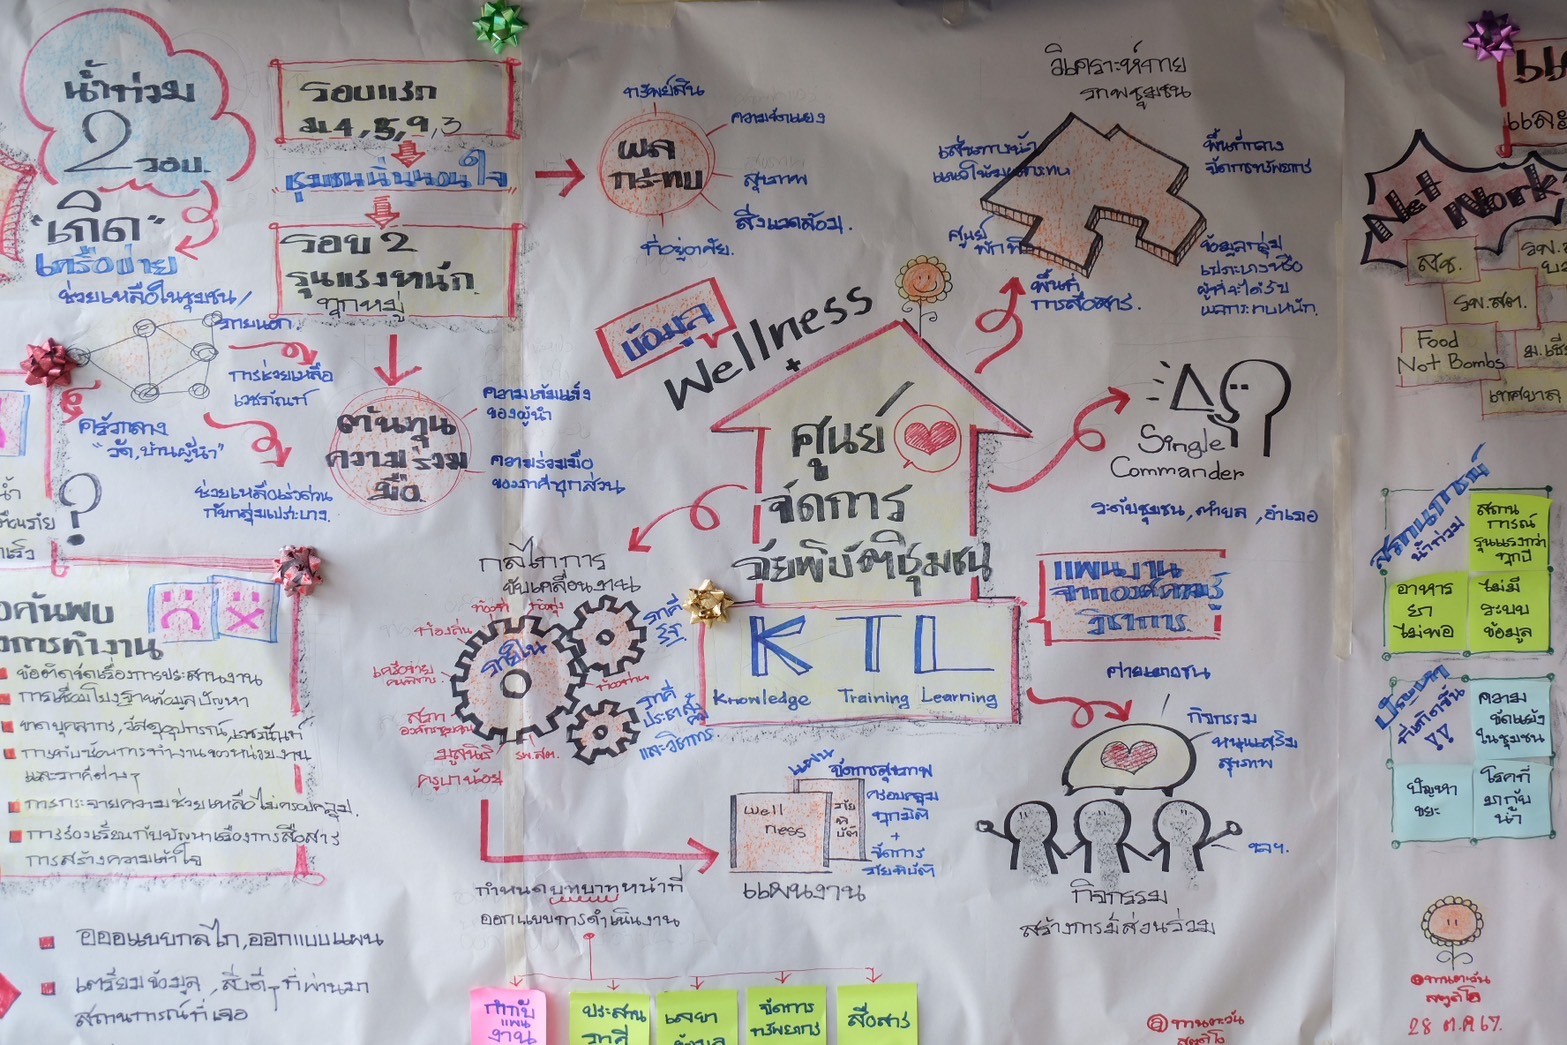 น้ำท่วม
2 รอบ.
"เกิด"
เครือข่าย
ช่วยเหลือในชุมชน/
ภายนอก.
การช่วยเหลือ
เวชภัณฑ์
ครัวกลาง
"วัด,บ้านผู้นำ"
ช่วยเหลือเร่งด่วน
กับกลุ่มเปราะบาง.
?
รอบแรก
ม.4,5,9,3
ชุมชนนิ่งนอนใจ
รอบ 2
รุนแรงหนัก.
ทุกหมู่
ต้นทุน
ความร่วม
มือ
ความเข้มแข็ง
ของผู้นำ
ความร่วมมือ
ของภาคีทุกส่วน
ผล
กระทบ
ทรัพย์สิน
ความขัดแย้ง
สุขภาพ
สิ่งแวดล้อม.
ที่อยู่อาศัย.
วิเคราะห์กาย
ภาพชุมชน
เส้นทางน้ำ
พื้นที่กลาง
จัดการทรัพยากร
ศูนย์
พื้นที่
การสื่อสาร.
ข้อมูลกลุ่ม
เปราะบางหรือ
ผู้ที่จะได้รับ
ผลกระทบหนัก.
ข้อมูล
Wellness
+
ศูนย์
จัดการ
ภัยพิบัติชุมชน
KTL
Knowledge Training Learning
Single
Commander
ระดับชุมชน,ตำบล,อำเภอ
แผนงาน
จากองค์ความรู้
วิชาการ
กลไกการ
ขับเคลื่อนงาน
ภายใน
ท้องถิ่น
เครือข่าย
สภา
องค์กรชุมชน
มูลนิธิ
ครูบาน้อย
รพ.สต.
ภาคี
รัฐ.
ภาคี
ประชาสังคม
และวิชาการ.
กำหนดบทบาทหน้าที่
ออกแบบการดำเนินงาน
กำกับ
แผน
งาน
ประสาน
ภาคี
เลขา
ข้อมูล
จัดการ
ทรัพยากร
สื่อสาร
well
ness
ภัย
พิ
บัติ
แผน
จัดการสุขภาพ
ครอบคลุม
ทุกมิติ
+
จัดการ
ภัยพิบัติ
แผนงาน
กิจกรรม
หนุนเสริม
สุขภาพ
ฯลฯ.
กิจกรรม
สร้างการมีส่วนร่วม
ค้นพบ
การทำงาน
ข้อติดขัดเรื่องการประสานงาน
การเชื่อมโยงฐานข้อมูลปัญหา
ขาดบุคลากร,วัสดุอุปกรณ์,เวชภัณฑ์
การทับซ้อนการทำงานของหน่วยงาน
และภาคีต่างๆ
การกระจายความช่วยเหลือไม่ครอบคลุม.
การร้องเรียนกับปัญหาเรื่องการสื่อสาร
การสร้างความเข้าใจ
ออกแบบกลไก,ออกแบบแผน
เตรียมข้อมูล,สิ่งดีๆที่ผ่านมา
สถานการณ์ที่เจอ
Net Work
สช.
รพ.สต.
Food
Not Bombs
เทศบาล
สถานการณ์
น้ำท่วม
สถาน
การณ์
รุนแรงกว่า
ทุกปี
อาหาร
ยา
ไม่พอ
ไม่มี
ระบบ
ข้อมูล
ปัญหา
ที่เกิดขึ้น
!!
ความ
ขัดแย้ง
ในชุมชน
ปัญหา
ขยะ
โรคที่
มากับ
น้ำ
ทานตะวัน
สตูดิโอ
28 ต.ค 67.
ทานตะวัน
สตูดิโอ